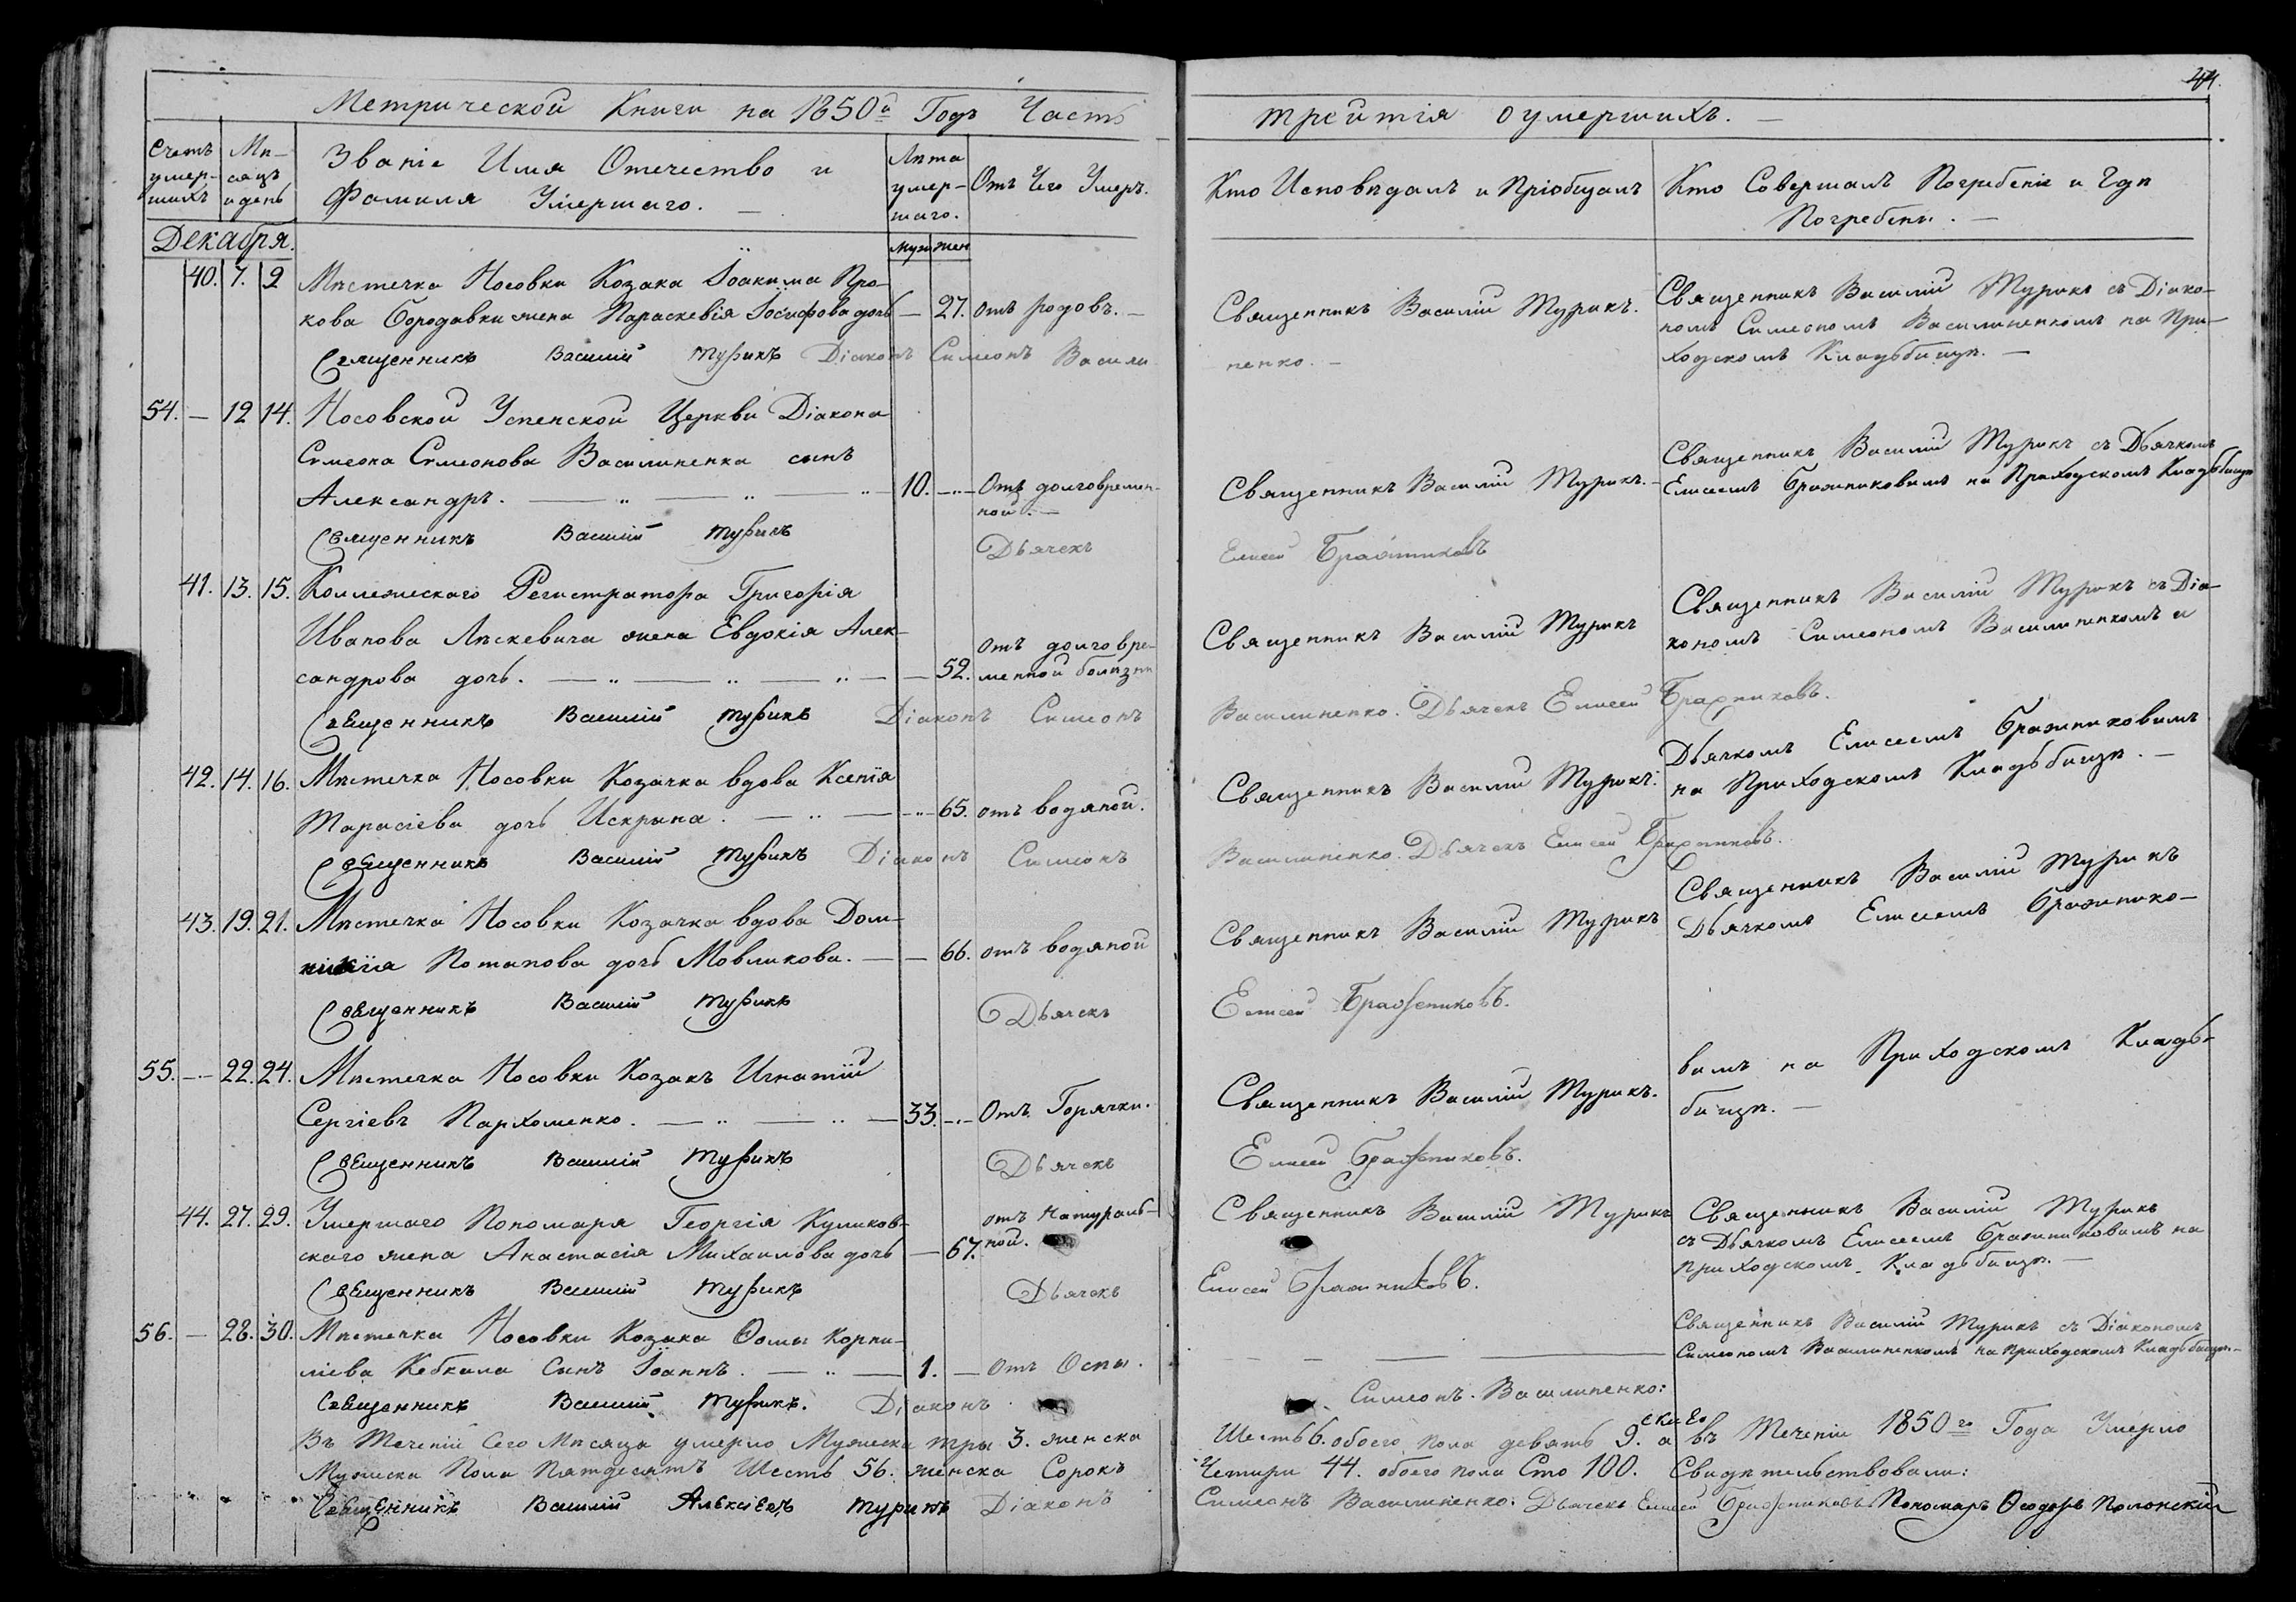 44.
Метрической Книги на 1850й Годъ Часть
третія о умершихъ. —
Счетъ умер-шихъ
Мѣ-сяцъ и день
Званіе Имя Отечество и
Фамилія Умершаго. —
Лѣта умер-шаго.
муж жен
Отъ Чего Умеръ.
Кто Исповѣдалъ и Пріобщалъ
Кто Совершалъ Погребеніе и Гдѣ
Погребены. —
Декабря.
40. 7. 9 Мѣстечка Носовки Козака Іоакима Про-
кова Бородавки жена Параскевія Іосифова дочь — 27. отъ родовъ. —
Священникъ Василій Турикъ.
Священникъ Василій Турикъ съ Діако-
номъ Симеономъ Василиненкомъ на При-
ходскомъ Кладьбищѣ. —
Священникъ Василій Турикъ Діаконъ Симеонъ Васили
ненко. —
54. — 12 14. Носовской Успенской Церкви Діакона
Симеона Симеонова Василиненка сынъ
Александръ. — 10. — Отъ долговремен-
ной. —
Священникъ Василій Турикъ. —
Священникъ Василій Турикъ съ Дьячкомъ
Елисеемъ Бражниковымъ на Приходскомъ Кладьбищѣ
Священникъ Василій Турикъ Дьячекъ
Елисей Бражниковъ
41. 13. 15. Коллежскаго Регистратора Григорія
Иванова Лѣскевича жена Евдокія Алек-
сандрова дочь. — 52. отъ долговре-
менной болѣзни
Священникъ Василій Турикъ
Священникъ Василій Турикъ съ Діа-
кономъ Симеономъ Василиненкомъ и
Священникъ Василій Турикъ Діаконъ Симеонъ
Василиненко. Дьячекъ Елисей Бражниковъ.
42. 14. 16. Мѣстечка Носовки Козачка вдова Ксенія
Тарасіева дочь Искрина. — 65. отъ водяной.
Священникъ Василій Турикъ.
Дьячкомъ Елисеемъ Бражниковымъ
на Приходскомъ Кладьбищѣ. —
Священникъ Василій Турикъ Діаконъ Симеонъ
Василиненко. Дьячекъ Елисей Бражниковъ.
43. 19. 21. Мѣстечка Носовки Козачка вдова Дом-
нікія Потапова дочь Мовликова. — 66. отъ водяной
Священникъ Василій Турикъ
Священникъ Василій Турикъ
Дьячкомъ Елисеемъ Бражнико-
Священникъ Василій Турикъ Дьячекъ
Елисей Бражниковъ.
55. — 22. 24. Мѣстечка Носовки Козакъ Игнатій
Сергіевъ Пархоменко. — 33. — Отъ Горячки.
Священникъ Василій Турикъ.
вымъ на Приходскомъ Кладь-
бищѣ. —
Священникъ Василій Турикъ Дьячекъ
Елисей Бражниковъ.
44. 27. 29. Умершаго Пономаря Георгія Куликов-
скаго жена Анастасія Михаилова дочь — 67. отъ натураль-
ной.
Священникъ Василій Турикъ
Священникъ Василій Турикъ
съ Дьячкомъ Елисеемъ Бражниковымъ на
приходскомъ Кладьбищѣ. —
Священникъ Василій Турикъ Дьячекъ
Елисей Бражниковъ.
56. — 28. 30. Мѣстечка Носовки Козака Ѳомы Корни-
лиева Кебкала Сынъ Іоаннъ. — 1. — Отъ Оспы.
Священникъ Василій Турикъ съ Діакономъ
Симеономъ Василиненкомъ на приходскомъ Кладьбищѣ. —
Священникъ Василій Турикъ. Діаконъ
Симеонъ. Василиненко:
Въ Теченіи Сего Мѣсяца умерло Мужеска три 3. женска
Шесть 6. обоего пола девять 9. а въ Теченіи 1850го Года Умерло
Мужеска Пола Пятдесятъ Шесть 56. женска Сорокъ
Четыри 44. обоего пола Сто 100. Свидѣтельствовали:
Священникъ Василій Алексіевъ Турикъ Діаконъ
Симеонъ Василиненко. Дьячекъ Елисей Бражниковъ Пономаръ Ѳеодоръ Полонскій